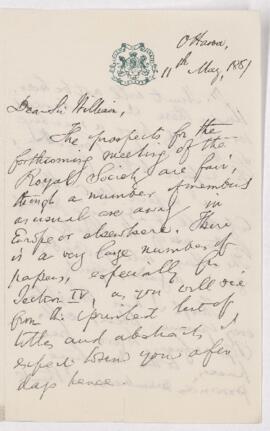 Ottawa,
11th May, 1891
Dear Sir William,
The prospects for the
forthcoming meeting of the
Royal Society are fair,
though a number of members
as usual are away in
Europe or elsewhere. There
is a very large number of
papers, especially for
Section IV, as you will see
from the printed list of
titles and abstracts I
expect to send you a few
days hence.